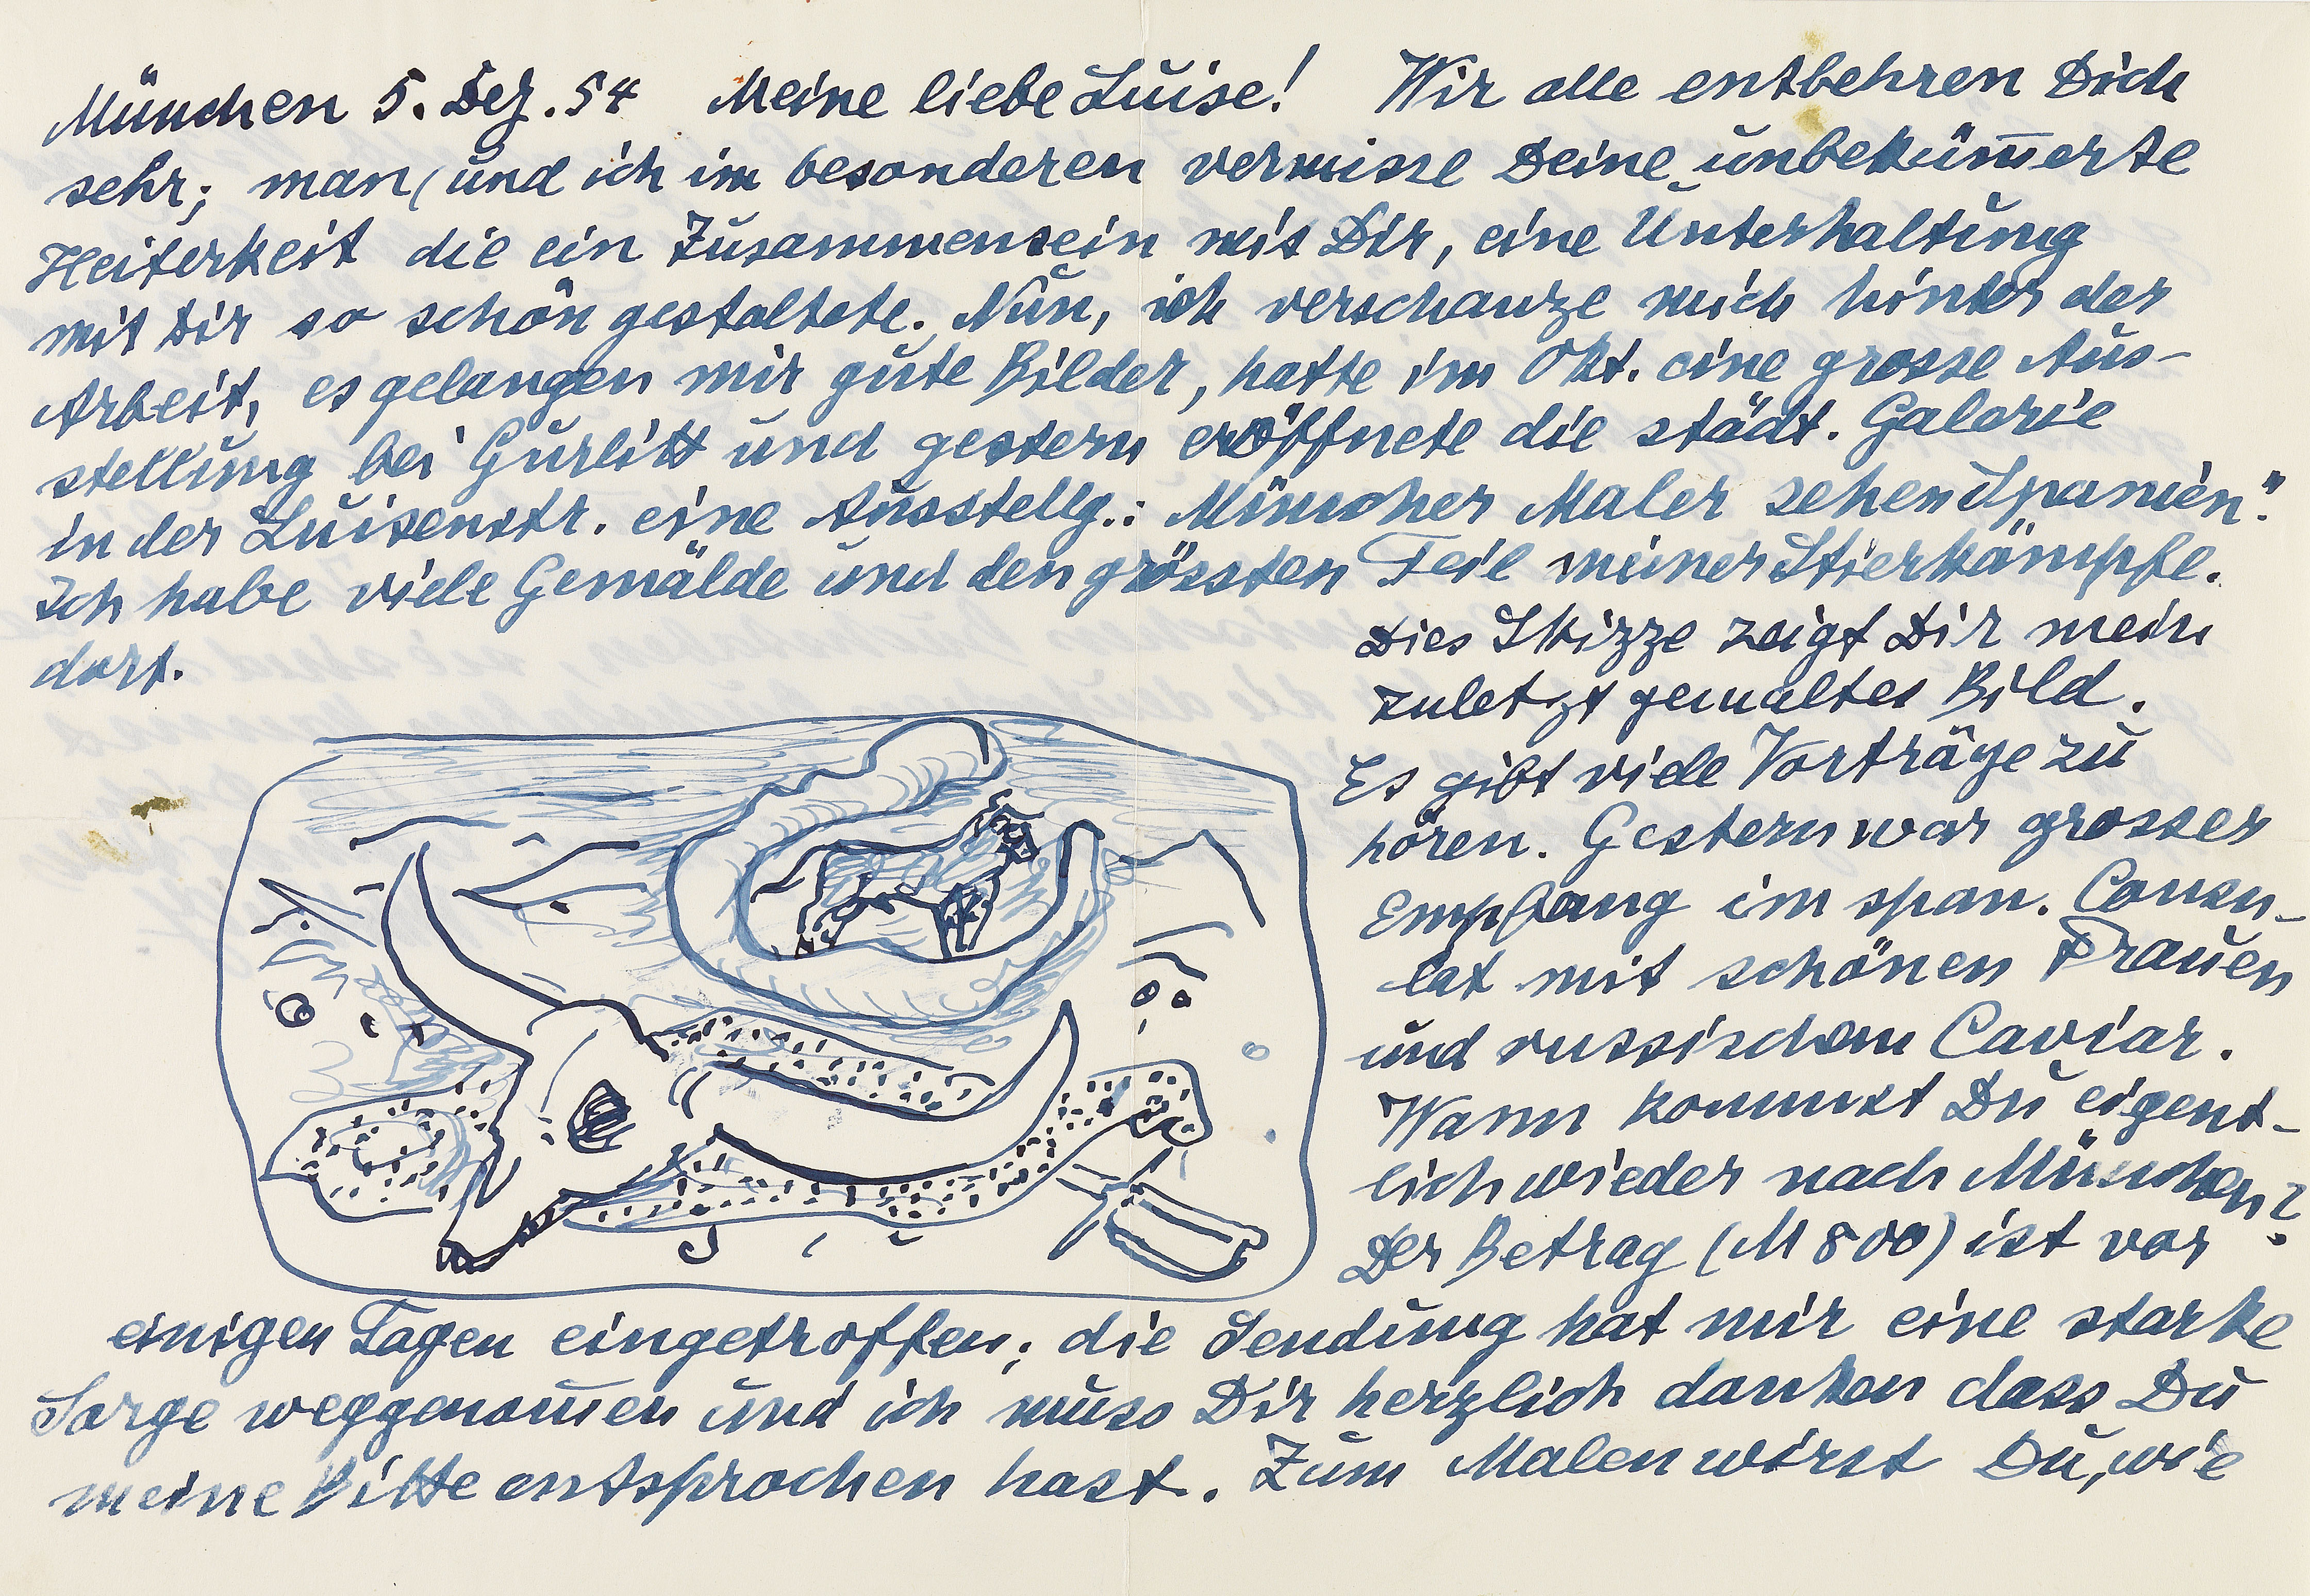 München 5. Dez. 54 Meine liebe Luise! Wir alle entbehren Dich
sehr; man (und ich im besonderen vermisse Deine unbeküm̅erte
Heiterkeit die ein Zusammensein mit Dir, eine Unterhaltung
mit Dir so schön gestaltete. Nun, ich verschanze mich hinter der
Arbeit, es gelangen mir gute Bilder, hatte im Okt. eine grosse Aus-
stellung bei Gurlitt und gestern eröffnete die städt. Galerie
in der Luisenstr. eine Ausstellg.: Münchner Maler sehen Spanien".
Ich habe viele Gemälde und den grössten Teil meiner Stierkämpfe.
dort.
Dies Skizze zeigt Dir mein
zuletzt gemaltes Bild.
Es gibt viele Vorträge zu
hören. Gestern war grosser
Empfang im span. Consu-
lat mit schönen Frauen
und russischem Caviar.
Wann kommst Du eigent-
lich wieder nach München?
Der Betrag (M 800) ist vor
einigen Tagen eingetroffen; die Sendung hat mir eine starke
Sorge weggenom̅en und ich muss Dir herzlich danken dass Du
meine Bitte entsprochen hast. Zum Malen wirst Du, wie